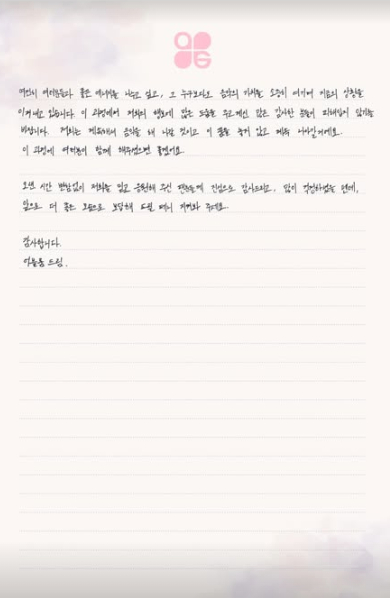 여전히 여러분들과 좋은 에너지를 나누고 싶고, 그 누구보다도 음악의 가치를 소중히 여기며 저희의 일상을
이겨내고 있습니다. 이 과정에서 저희의 행보에 많은 도움을 주고계신 많은 감사한 분들이 피해입지 않기를
바랍니다. 저희는 계속해서 음악을 해 나갈 것이고 이 꿈을 놓지 않고 계속 나아갈거에요.
이 과정에 여러분이 함께 해주셨으면 좋겠어요.
오랜 시간 변함없이 저희를 믿고 응원해 주신 팬분들께 진심으로 감사드리고, 많이 걱정하셨을 텐데,
앞으로 더 좋은 모습으로 보답해 드릴 테니 지켜봐 주세요.
감사합니다.
드림.